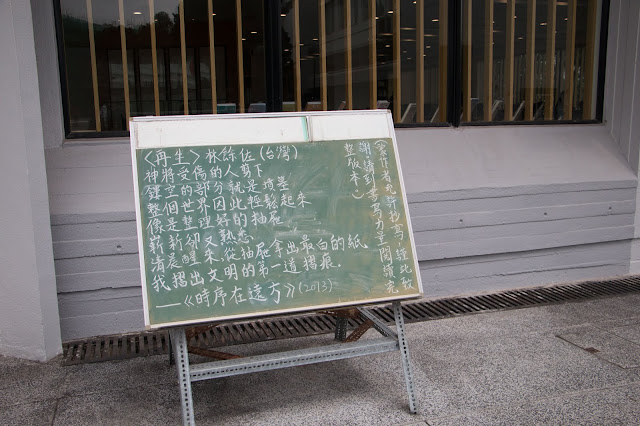 〈再生〉 林餘佐(台灣)
神將受傷的人剪下
鏤空的部分就是墳墓
整個世界因此輕鬆起來
像是整理好的抽屜
嶄新卻又熟悉
清晨醒來從抽屜拿出最白的紙
我摺出文明的第一道摺痕.
——《時序在遠方》(2013)
(蒙作者允許抄寫,經此致
謝。請到書寫力量閱讀完
整版本。)